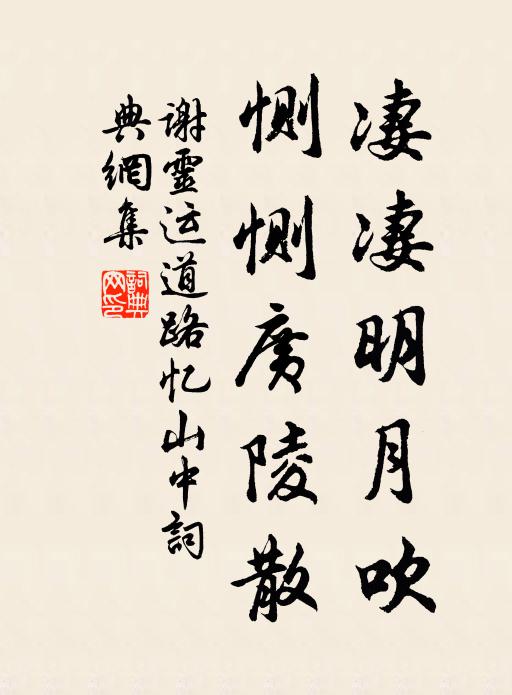 凄凄明月吹
惻惻廣陵散
謝靈运道路忆山中詞
典網集
詞典
网印